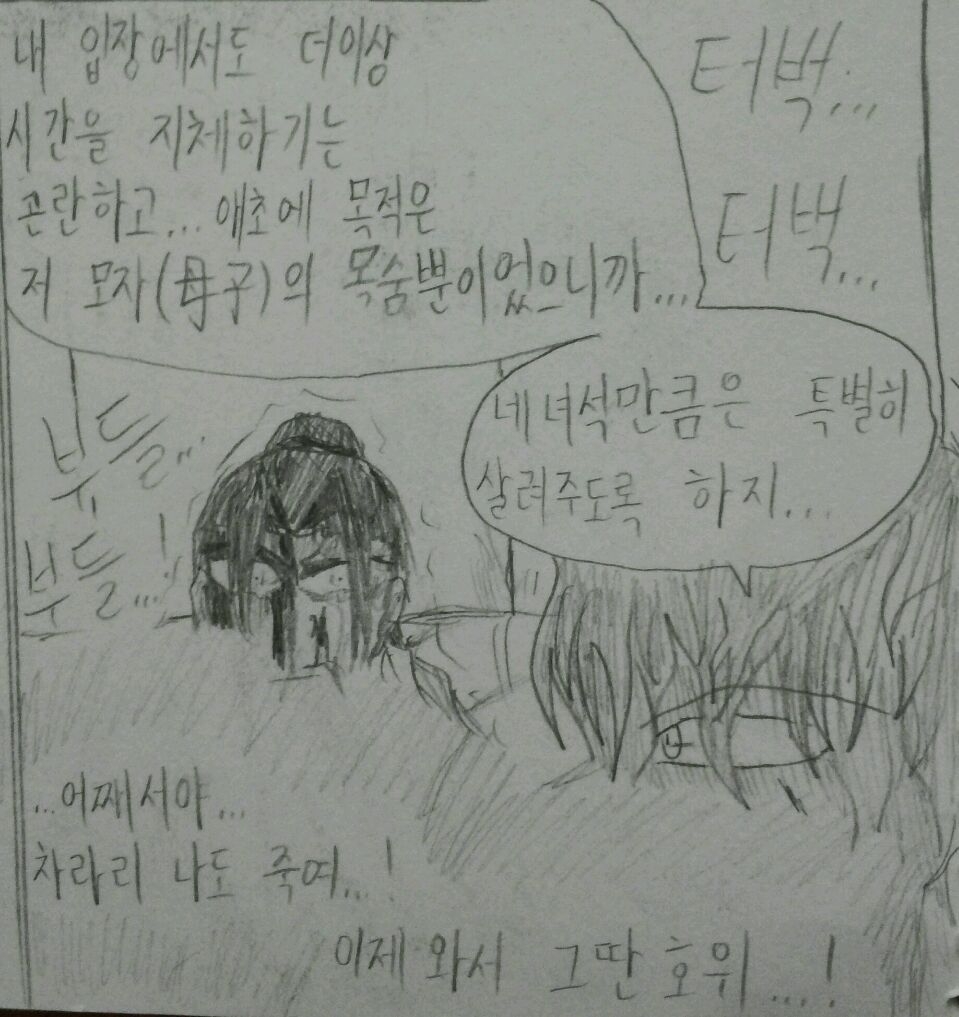 내 입장에서도 더이상
시간을 지체하기는
곤란하고... 애초에 목적은
저 모자(母子)의 목숨뿐이었으니까...
터벅...
터벅...
네녀석만큼은 특별히
살려주도록 하지...
부들...
부들...!
...어째서야...
차라리 나도 죽여...!
이제 와서 그딴 호위...!